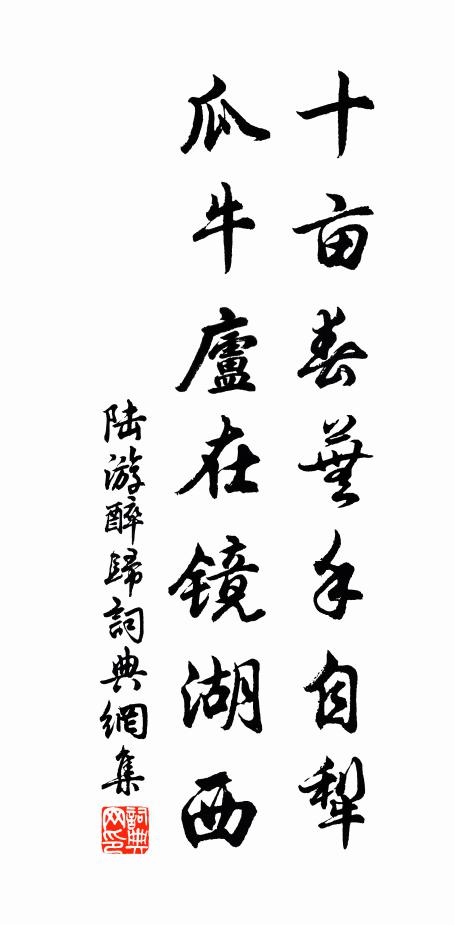 十亩春蕪手自犁
瓜牛廬在镜湖西
陆游醉歸詞典網集
詞典网印